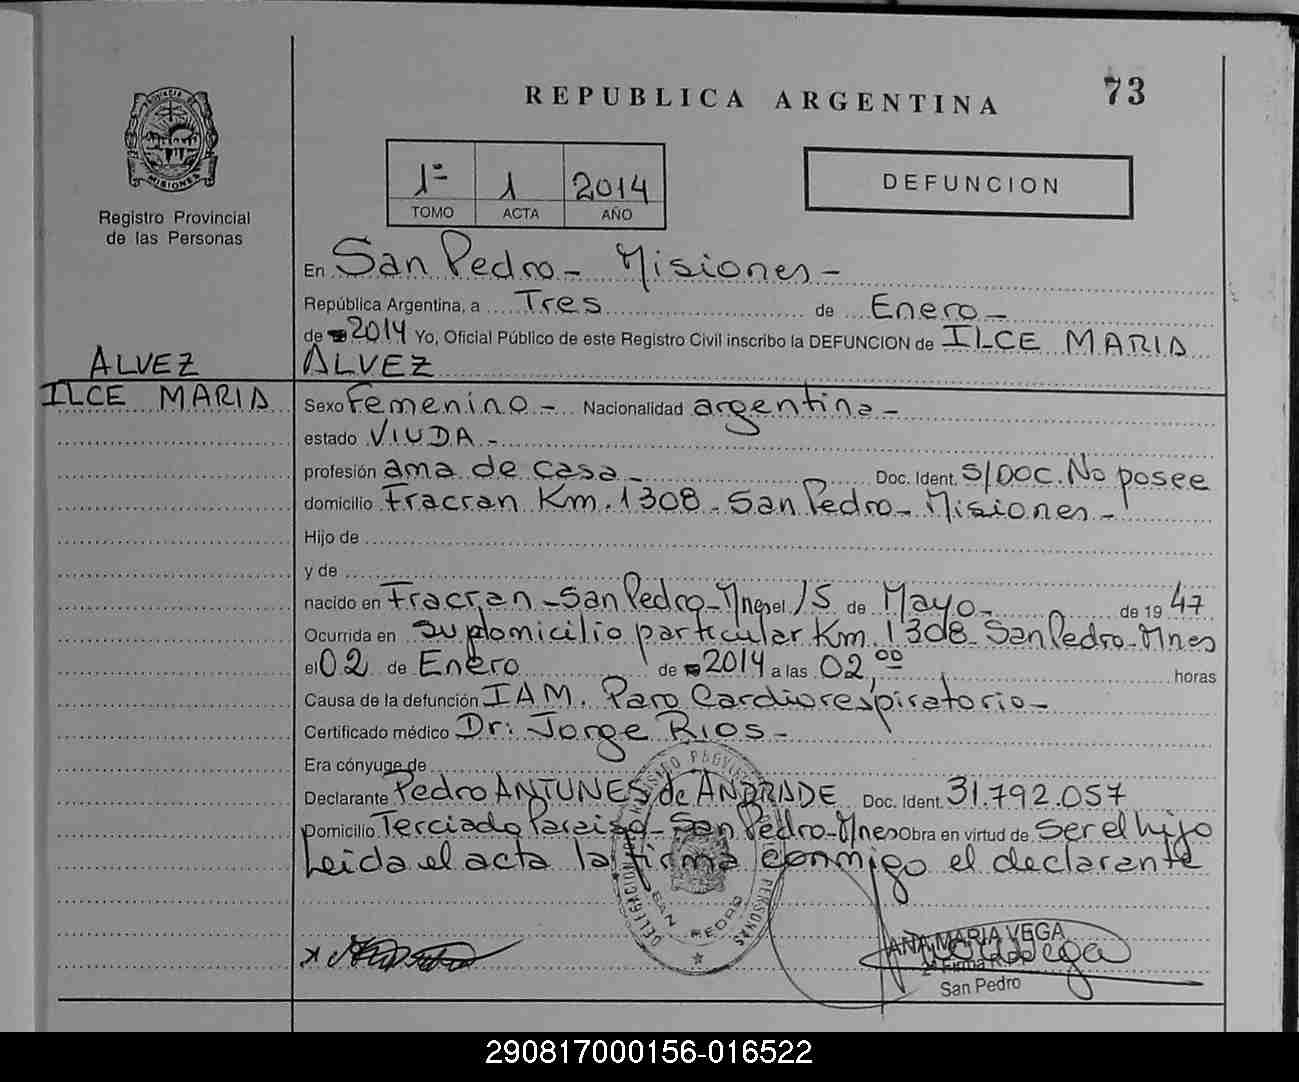 REPUBLICA ARGENTINA
73
PROVINCIA DE MISIONES
Registro Provincial
de las Personas
1º 1 2014
TOMO ACTA AÑO
DEFUNCION
En San Pedro - Misiones -
República Argentina, a Tres de Enero -
de 2014 Yo, Oficial Público de este Registro Civil inscribo la DEFUNCION de ILCE MARIA
ALVEZ
ALVEZ
ILCE MARIA
Sexo Femenino - Nacionalidad argentina -
estado VIUDA -
profesión ama de casa - Doc. Ident. S/DOC. No posee
domicilio Fracran Km. 1308 - San Pedro - Misiones -
Hijo de
y de
nacido en Fracran - San Pedro - Mnes el 15 de Mayo - de 19 47
Ocurrida en su domicilio particular Km. 1308 - San Pedro - Mnes
el 02 de Enero de 2014 a las 02,00 horas
Causa de la defunción IAM. Paro Cardiorespiratorio -
Certificado médico Dr: Jorge RIOS -
Era cónyuge de
Declarante Pedro ANTUNES de ANDRADE Doc. Ident. 31.792.057
Domicilio Terciado Paraiso - San Pedro - Mnes Obra en virtud de ser el hijo
Leida el acta la firma conmigo el declarante
SAN PEDRO
ANA MARIA VEGA
2ª Firma R.P.P.
San Pedro
290817000156-016522